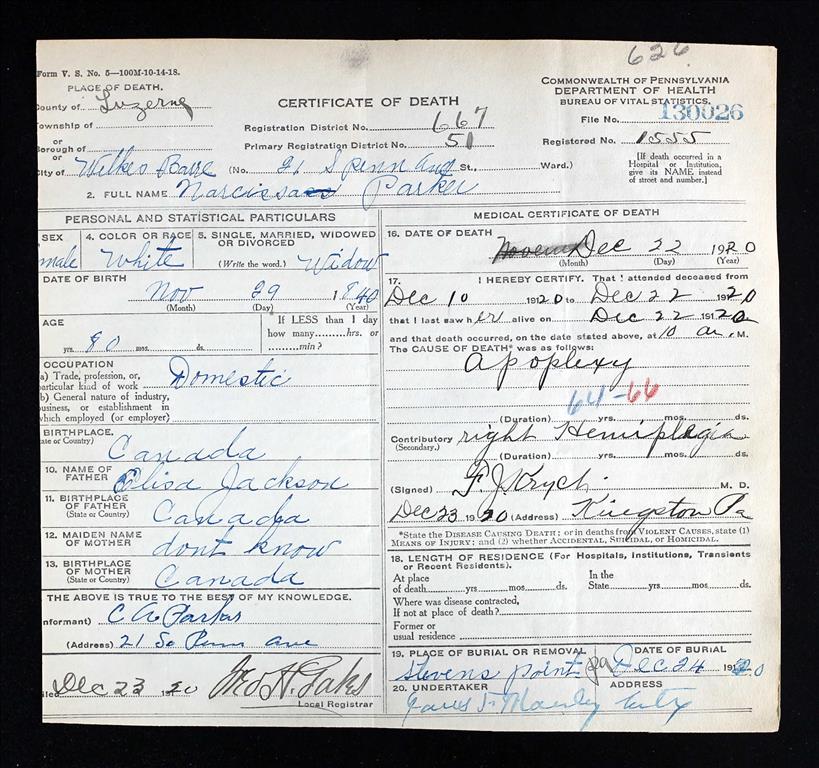 626
Form V. S. No. 5—100M-10-14-18.
PLACE OF DEATH.
County of Luzerne
Township of
or
Borough of
or
City of Wilkes Barre (No. 21 S Penn Ave St., Ward.)
COMMONWEALTH OF PENNSYLVANIA
DEPARTMENT OF HEALTH
BUREAU OF VITAL STATISTICS.
CERTIFICATE OF DEATH
Registration District No. 667
Primary Registration District No. 51
File No. 130026
Registered No. 1555
[If death occurred in a
Hospital or Institution,
give its NAME instead
of street and number.]
2. FULL NAME Narcissa Parker
PERSONAL AND STATISTICAL PARTICULARS
SEX
male
4. COLOR OR RACE
White
5. SINGLE, MARRIED, WIDOWED
OR DIVORCED
(Write the word.) Widow
DATE OF BIRTH
Nov 29 1840
(Month) (Day) (Year)
AGE
80 yrs. mos. ds.
If LESS than 1 day
how many hrs. or
min?
OCCUPATION
a) Trade, profession, or,
particular kind of work
Domestic
b) General nature of industry,
business, or establishment in
which employed (or employer)
BIRTHPLACE.
(State or Country)
Canada
10. NAME OF
FATHER
Elisa Jackson
11. BIRTHPLACE
OF FATHER
(State or Country)
Canada
12. MAIDEN NAME
OF MOTHER
dont know
13. BIRTHPLACE
OF MOTHER
(State or Country)
Canada
THE ABOVE IS TRUE TO THE BEST OF MY KNOWLEDGE.
Informant) C A Parker
(Address) 21 So Penn ave
Filed Dec 23 1920
Local Registrar
MEDICAL CERTIFICATE OF DEATH
16. DATE OF DEATH
Dec 22 1920
(Month) (Day) (Year)
17. I HEREBY CERTIFY. That I attended deceased from
Dec 10 1920 to Dec 22 1920
that I last saw her alive on Dec 22 1920
and that death occurred, on the date stated above, at 10 a. M.
The CAUSE OF DEATH* was as follows:
apoplexy
64-66
(Duration) yrs. mos. ds.
Contributory right Hemiplegia
(Secondary.)
(Duration) yrs. mos. ds.
(Signed) F. J. Krych M. D.
Dec 23 1920 (Address) Kingston Pa
*State the DISEASE CAUSING DEATH; or in deaths from VIOLENT CAUSES, state (1)
MEANS OF INJURY; and (2) whether ACCIDENTAL, SUICIDAL, or HOMICIDAL.
18. LENGTH OF RESIDENCE (For Hospitals, Institutions, Transients
or Recent Residents).
At place
of death yrs. mos. ds.
In the
State yrs. mos. ds.
Where was disease contracted,
If not at place of death?
Former or
usual residence
19. PLACE OF BURIAL OR REMOVAL
Stevens Point Pa
DATE OF BURIAL
Dec 24 1920
20. UNDERTAKER
ADDRESS
City